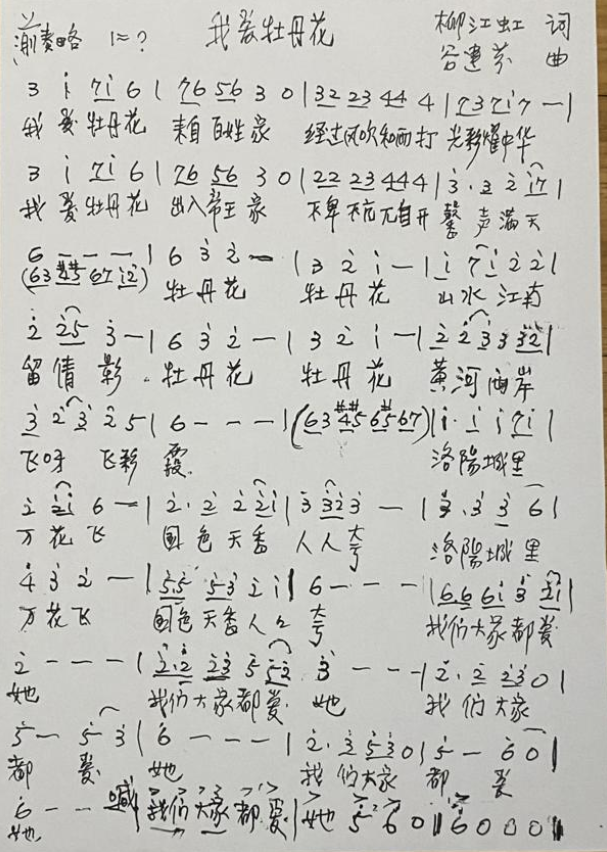 前奏略 1=? 我爱牡丹花 柳江虹 词
谷建芬 曲
3 i 7i 6 | 76 56 3 0 | 32 23 44 4 | 7 3 7 i 7 — |
我爱牡丹花 来自百姓家 经过风吹和雨打 光彩耀中华
3 i 7i 6 | 76 56 3 0 | 22 23 44 4 | 3. 3 2 i7 |
我爱牡丹花 出入帝王家 不卑不亢无自开 馨声满天
6 — — — | 6 3 2 — | 3 2 i — | i 7 i 2 2 |
(63 #4#5 67 i2) 牡丹花 牡丹花 山水江南
2 25 3 — | 6 3 2 — | 3 2 i — | 2 2 3 3 32 |
留倩影 牡丹花 牡丹花 黄河两岸
3 2 3 2 5 | 6 - - - | (63 #4#5 6#5 67) | i. i i 7i |
飞呀 飞彩霞 洛陽城里
2 2i 6 — | 2. 2 2 2i | 3 323 — | 3. 3 3 6 |
万花飞 国色天香 人人夸 洛陽城里
4 3 2 — | 55 53 2 i | 6 - - - | 66 6i 3 2i |
万花飞 国色天香人人夸 我们大家都爱
2 - - - | 2.2 23 5 52 | 3 - - - | 2. 2 23 0 |
她 我们大家都爱 她 我们大家
5 — 5 3 | 6 - - - | 2. 3 53 0 | 5 — 6 0 |
都 爱 她 我们大家 都 爱
6 - - 喊 | 我们大家都爱 | 她 5 6 0 || 6 0 0 0 ||
她